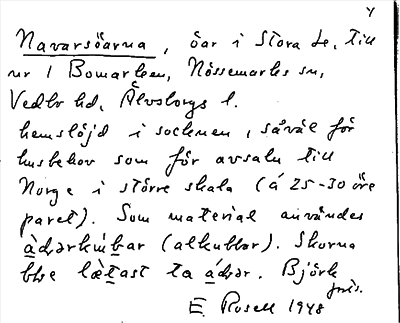 Y
Navarsöarna, öar i Stora Le, till
nr 1 Bomarken, Nössemarks sn,
Vedbo hd, Älvsborgs l.
hemslöjd i socknen, såväl för
husbehov som för avsalu till
Norge i större skala (á 25-30 öre
paret). Som material användes
(alkubbar). Skorna
ble lætast ta Björk
E. Rosell 1948